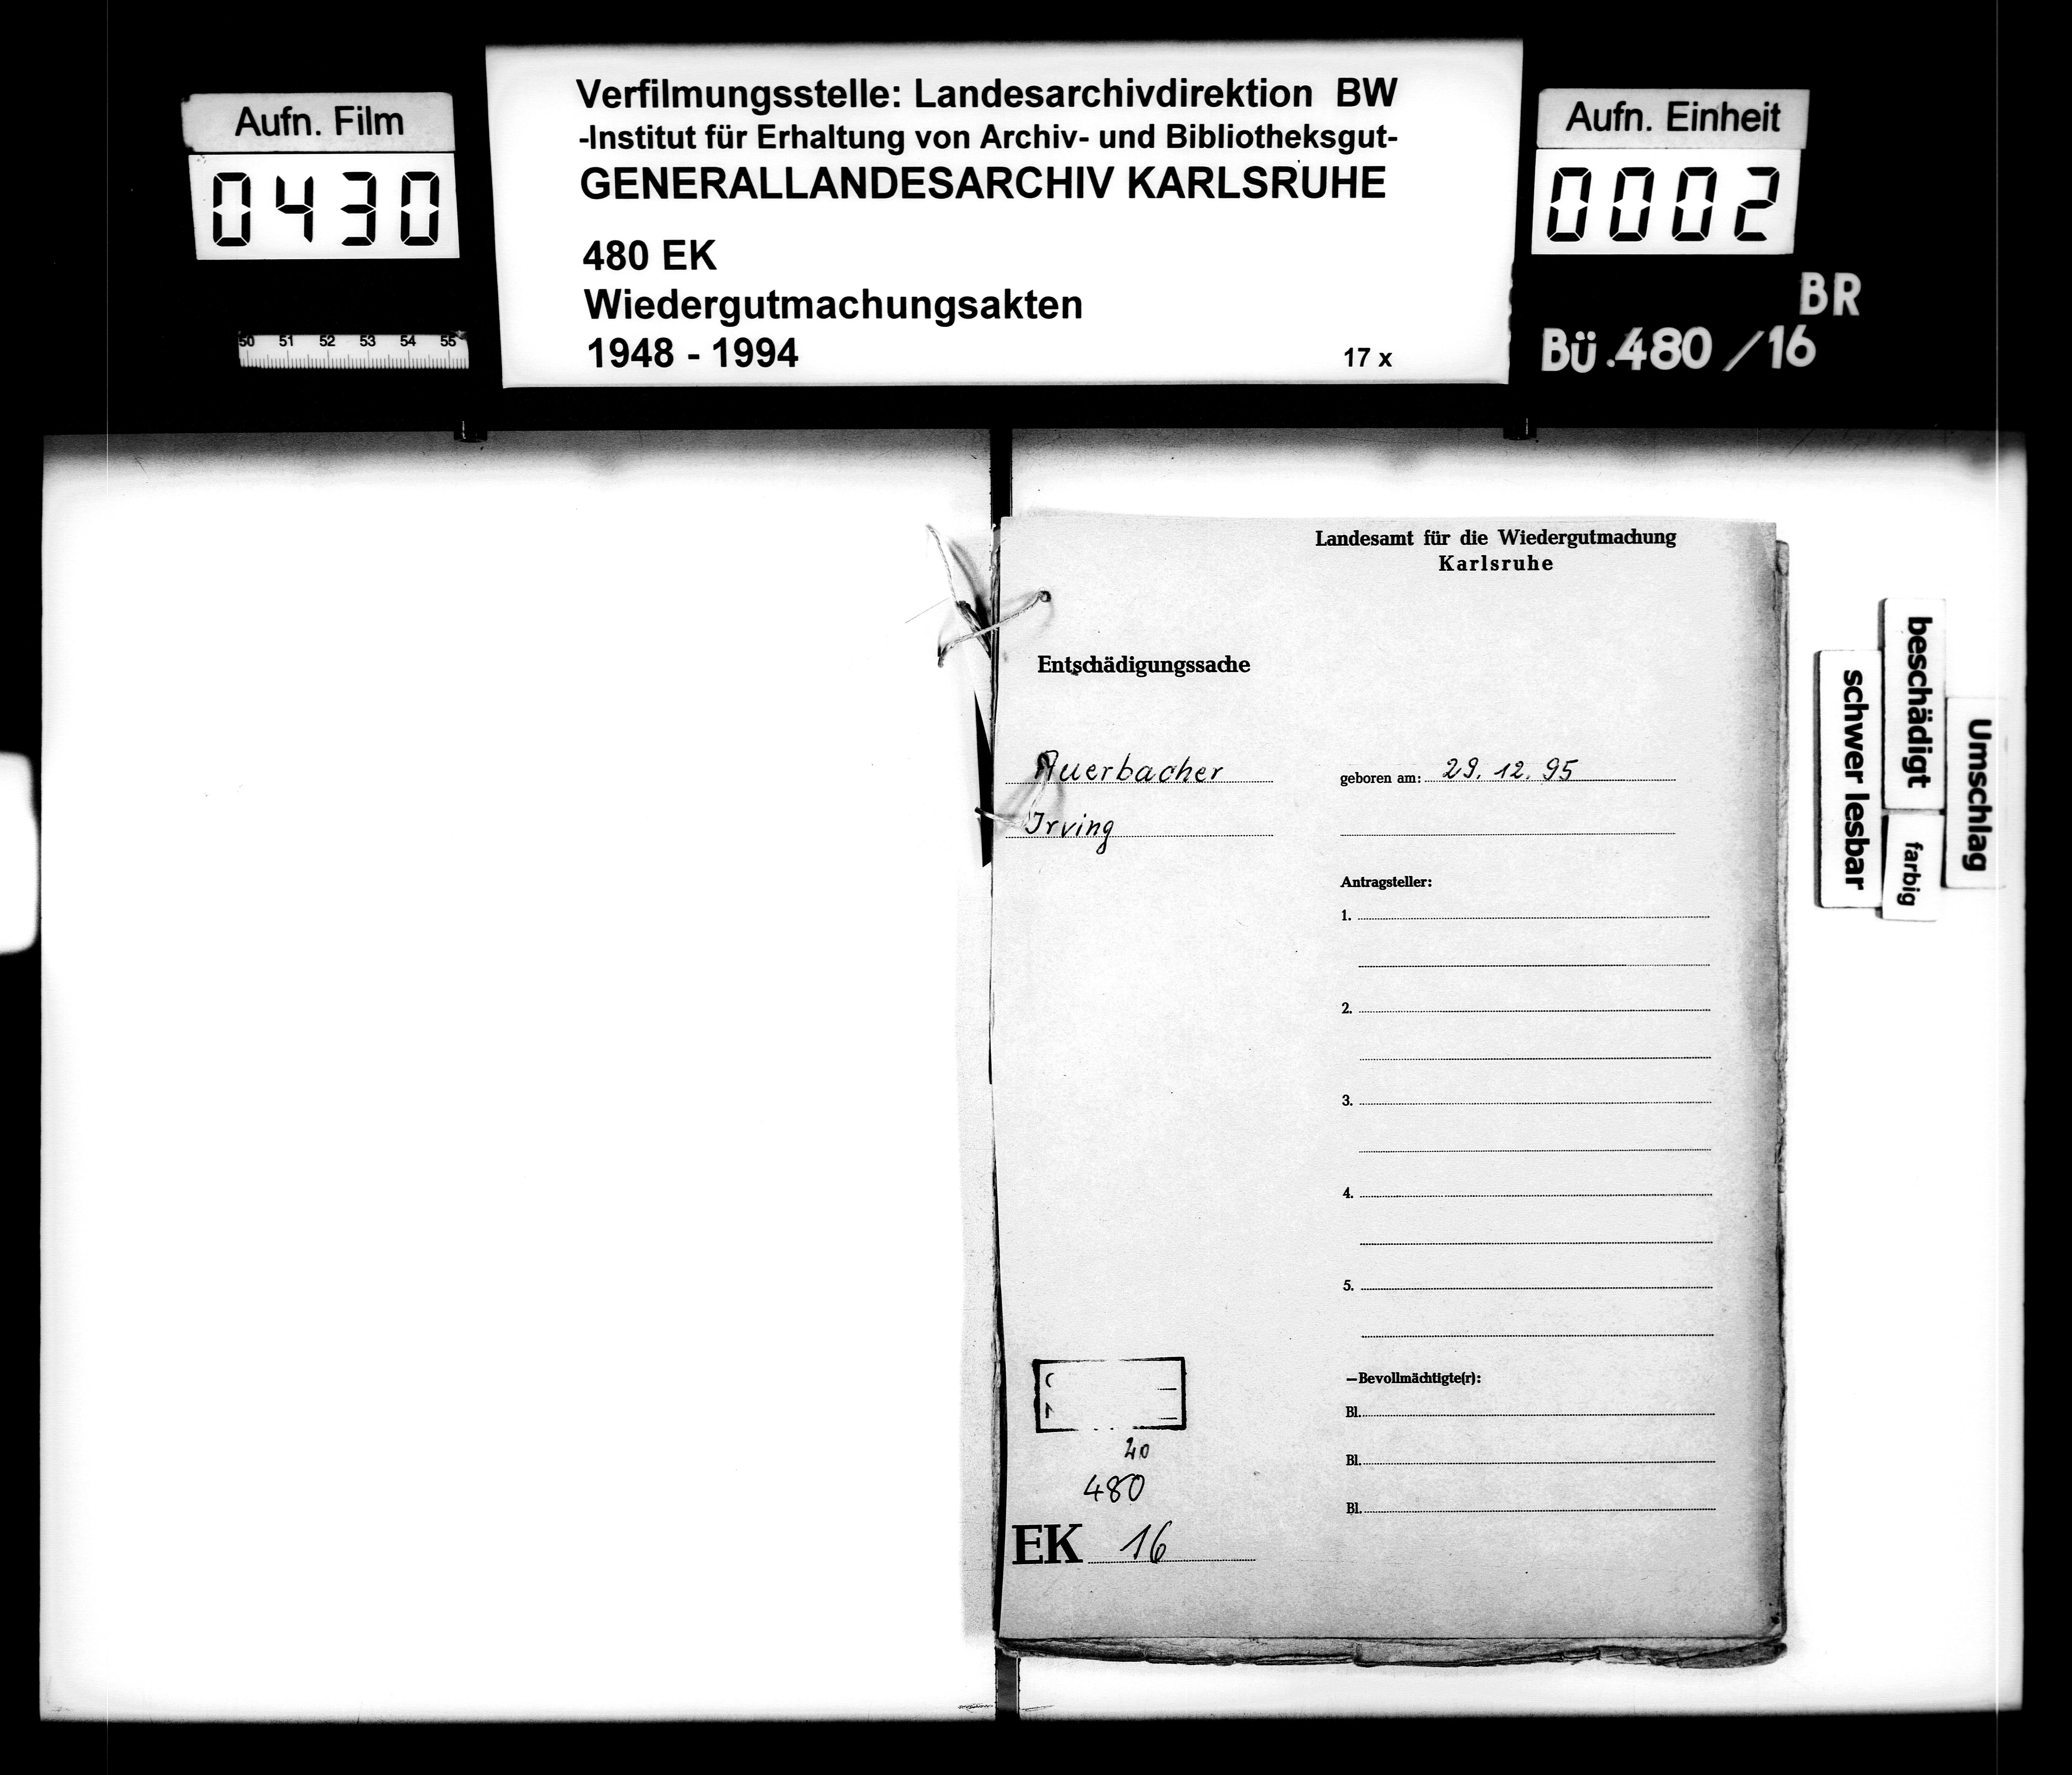 Aufn. Film
0430
Verfilmungsstelle: Landesarchivdirektion BW
-Institut für Erhaltung von Archiv- und Bibliotheksgut-
GENERALLANDESARCHIV KARLSRUHE
480 EK
Wiedergutmachungsakten
1948 - 1994
17 x
Aufn. Einheit
0002
BR
Bü.480/16
50 51 52 53 54 55
Landesamt für die Wiedergutmachung
Karlsruhe
Entschädigungssache
Auerbacher
geboren am: 29. 12. 95
Irving
Antragsteller:
1.
2.
3.
4.
5.
—Bevollmächtigte(r):
Bl.
Bl.
Bl.
20
480
EK 16
Umschlag
beschädigt
farbig
schwer lesbar